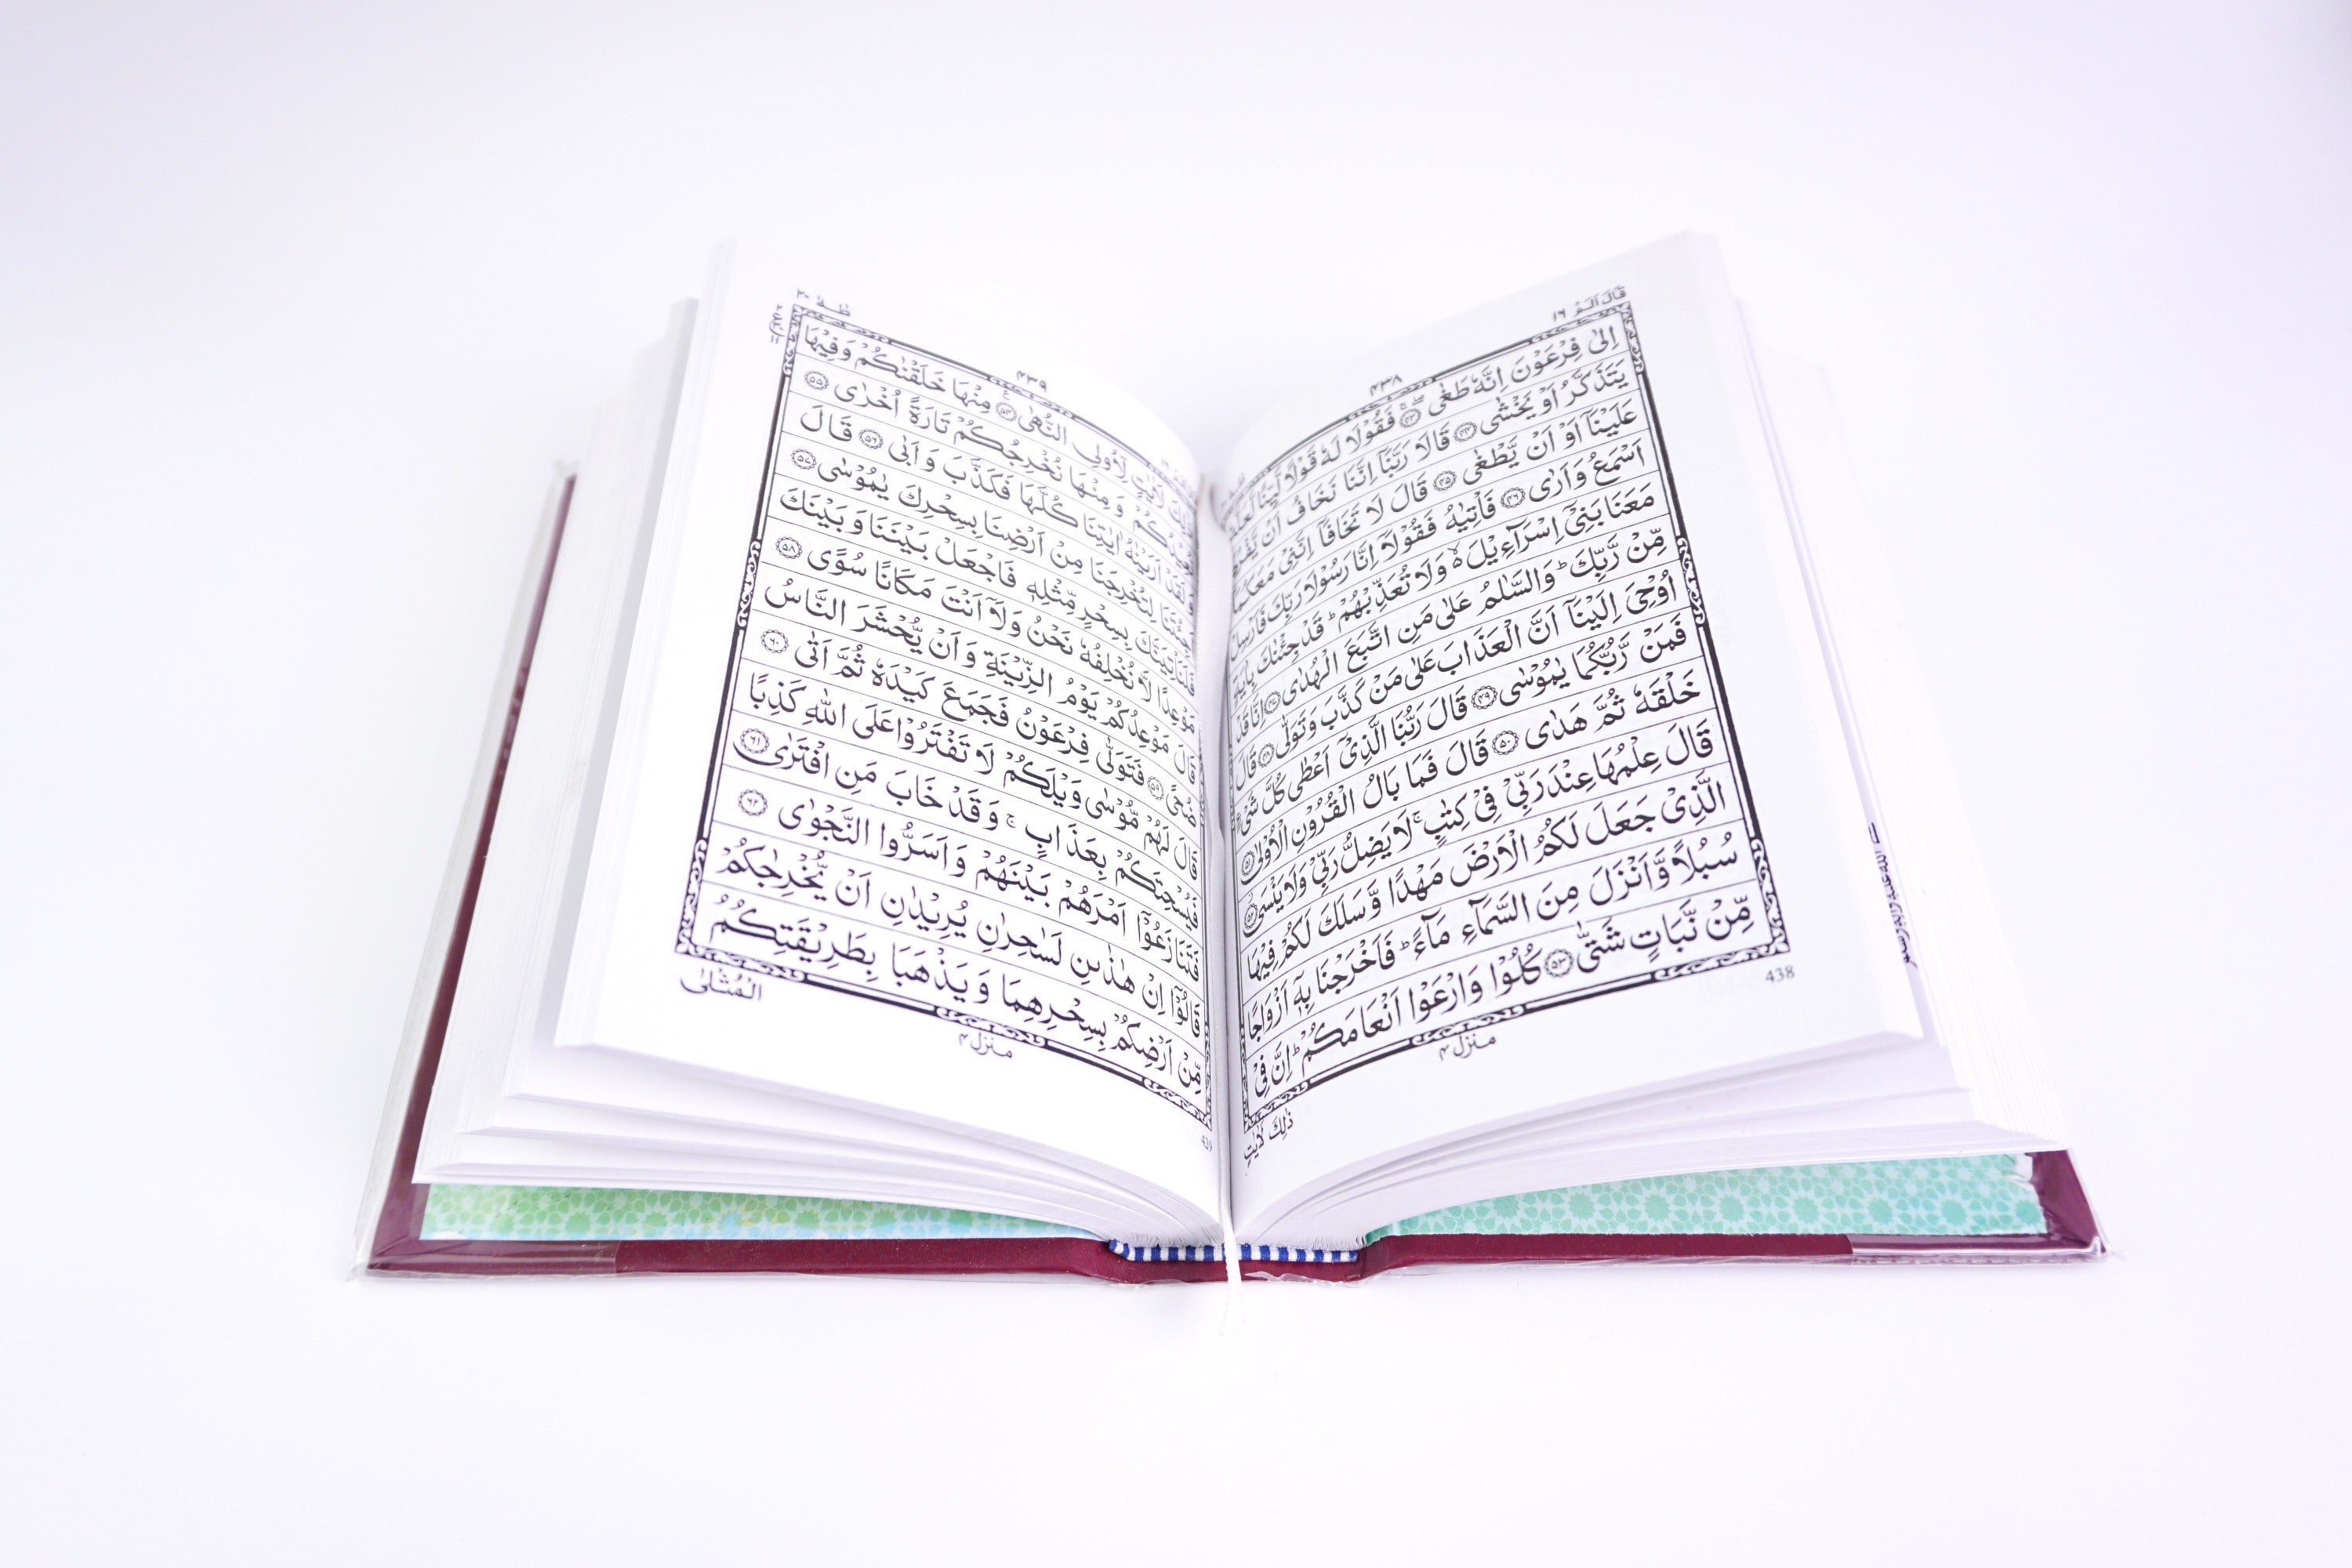 قَالَ اَلَمْ ١٦
۴۳۸
اِلٰى فِرْعَوْنَ اِنَّهٗ طَغٰى ﴿۴۳﴾ فَقُوْلَا لَهٗ قَوْلًا لَّيِّنًا لَّعَلَّهٗ
يَتَذَكَّرُ اَوْ يَخْشٰى ﴿۴۴﴾ قَالَا رَبَّنَآ اِنَّنَا نَخَافُ اَنْ يَّفْرُطَ
عَلَيْنَآ اَوْ اَنْ يَّطْغٰى ﴿۴۵﴾ قَالَ لَا تَخَافَآ اِنَّنِيْ مَعَكُمَآ
اَسْمَعُ وَاَرٰى ﴿۴۶﴾ فَاْتِيٰهُ فَقُوْلَآ اِنَّا رَسُوْلَا رَبِّكَ فَاَرْسِلْ
مَعَنَا بَنِيْٓ اِسْرَآءِيْلَ ۙ وَلَا تُعَذِّبْهُمْ ؕ قَدْ جِئْنٰكَ بِاٰيَةٍ
مِّنْ رَّبِّكَ ؕ وَالسَّلٰمُ عَلٰى مَنِ اتَّبَعَ الْهُدٰى ﴿۴۷﴾ اِنَّا قَدْ
اُوْحِيَ اِلَيْنَآ اَنَّ الْعَذَابَ عَلٰى مَنْ كَذَّبَ وَتَوَلّٰى ﴿۴۸﴾ قَالَ
فَمَنْ رَّبُّكُمَا يٰمُوْسٰى ﴿۴۹﴾ قَالَ رَبُّنَا الَّذِيْٓ اَعْطٰى كُلَّ شَيْءٍ
خَلْقَهٗ ثُمَّ هَدٰى ﴿۵۰﴾ قَالَ فَمَا بَالُ الْقُرُوْنِ الْاُوْلٰى ﴿۵۱﴾
قَالَ عِلْمُهَا عِنْدَ رَبِّيْ فِيْ كِتٰبٍ ۚ لَا يَضِلُّ رَبِّيْ وَلَا يَنْسَى ﴿۵۲﴾
الَّذِيْ جَعَلَ لَكُمُ الْاَرْضَ مَهْدًا وَّسَلَكَ لَكُمْ فِيْهَا
سُبُلًا وَّاَنْزَلَ مِنَ السَّمَآءِ مَآءً ؕ فَاَخْرَجْنَا بِهٖٓ اَزْوَاجًا
مِّنْ نَّبَاتٍ شَتّٰى ﴿۵۳﴾ كُلُوْا وَارْعَوْا اَنْعَامَكُمْ ؕ اِنَّ فِيْ
438
منزل ۴
ذٰلِكَ لَاٰيٰتٍ
طٰهٰ ٢٠
۴۳۹
ذٰلِكَ لَاٰيٰتٍ لِّاُولِى النُّهٰى ﴿۵۴﴾ مِنْهَا خَلَقْنٰكُمْ وَفِيْهَا
نُعِيْدُكُمْ وَمِنْهَا نُخْرِجُكُمْ تَارَةً اُخْرٰى ﴿۵۵﴾
وَلَقَدْ اَرَيْنٰهُ اٰيٰتِنَا كُلَّهَا فَكَذَّبَ وَاَبٰى ﴿۵۶﴾ قَالَ
اَجِئْتَنَا لِتُخْرِجَنَا مِنْ اَرْضِنَا بِسِحْرِكَ يٰمُوْسٰى ﴿۵۷﴾
فَلَنَاْتِيَنَّكَ بِسِحْرٍ مِّثْلِهٖ فَاجْعَلْ بَيْنَنَا وَبَيْنَكَ
مَوْعِدًا لَّا نُخْلِفُهٗ نَحْنُ وَلَآ اَنْتَ مَكَانًا سُوًى ﴿۵۸﴾
قَالَ مَوْعِدُكُمْ يَوْمُ الزِّيْنَةِ وَاَنْ يُّحْشَرَ النَّاسُ
ضُحًى ﴿۵۹﴾ فَتَوَلّٰى فِرْعَوْنُ فَجَمَعَ كَيْدَهٗ ثُمَّ اَتٰى ﴿۶۰﴾
قَالَ لَهُمْ مُّوْسٰى وَيْلَكُمْ لَا تَفْتَرُوْا عَلَى اللّٰهِ كَذِبًا
فَيُسْحِتَكُمْ بِعَذَابٍ ۚ وَقَدْ خَابَ مَنِ افْتَرٰى ﴿۶۱﴾
فَتَنَازَعُوْٓا اَمْرَهُمْ بَيْنَهُمْ وَاَسَرُّوا النَّجْوٰى ﴿۶۲﴾
قَالُوْٓا اِنْ هٰذٰىنِ لَسٰحِرٰنِ يُرِيْدٰنِ اَنْ يُّخْرِجٰكُمْ
مِّنْ اَرْضِكُمْ بِسِحْرِهِمَا وَيَذْهَبَا بِطَرِيْقَتِكُمُ
الْمُثْلٰى
منزل ۴
439